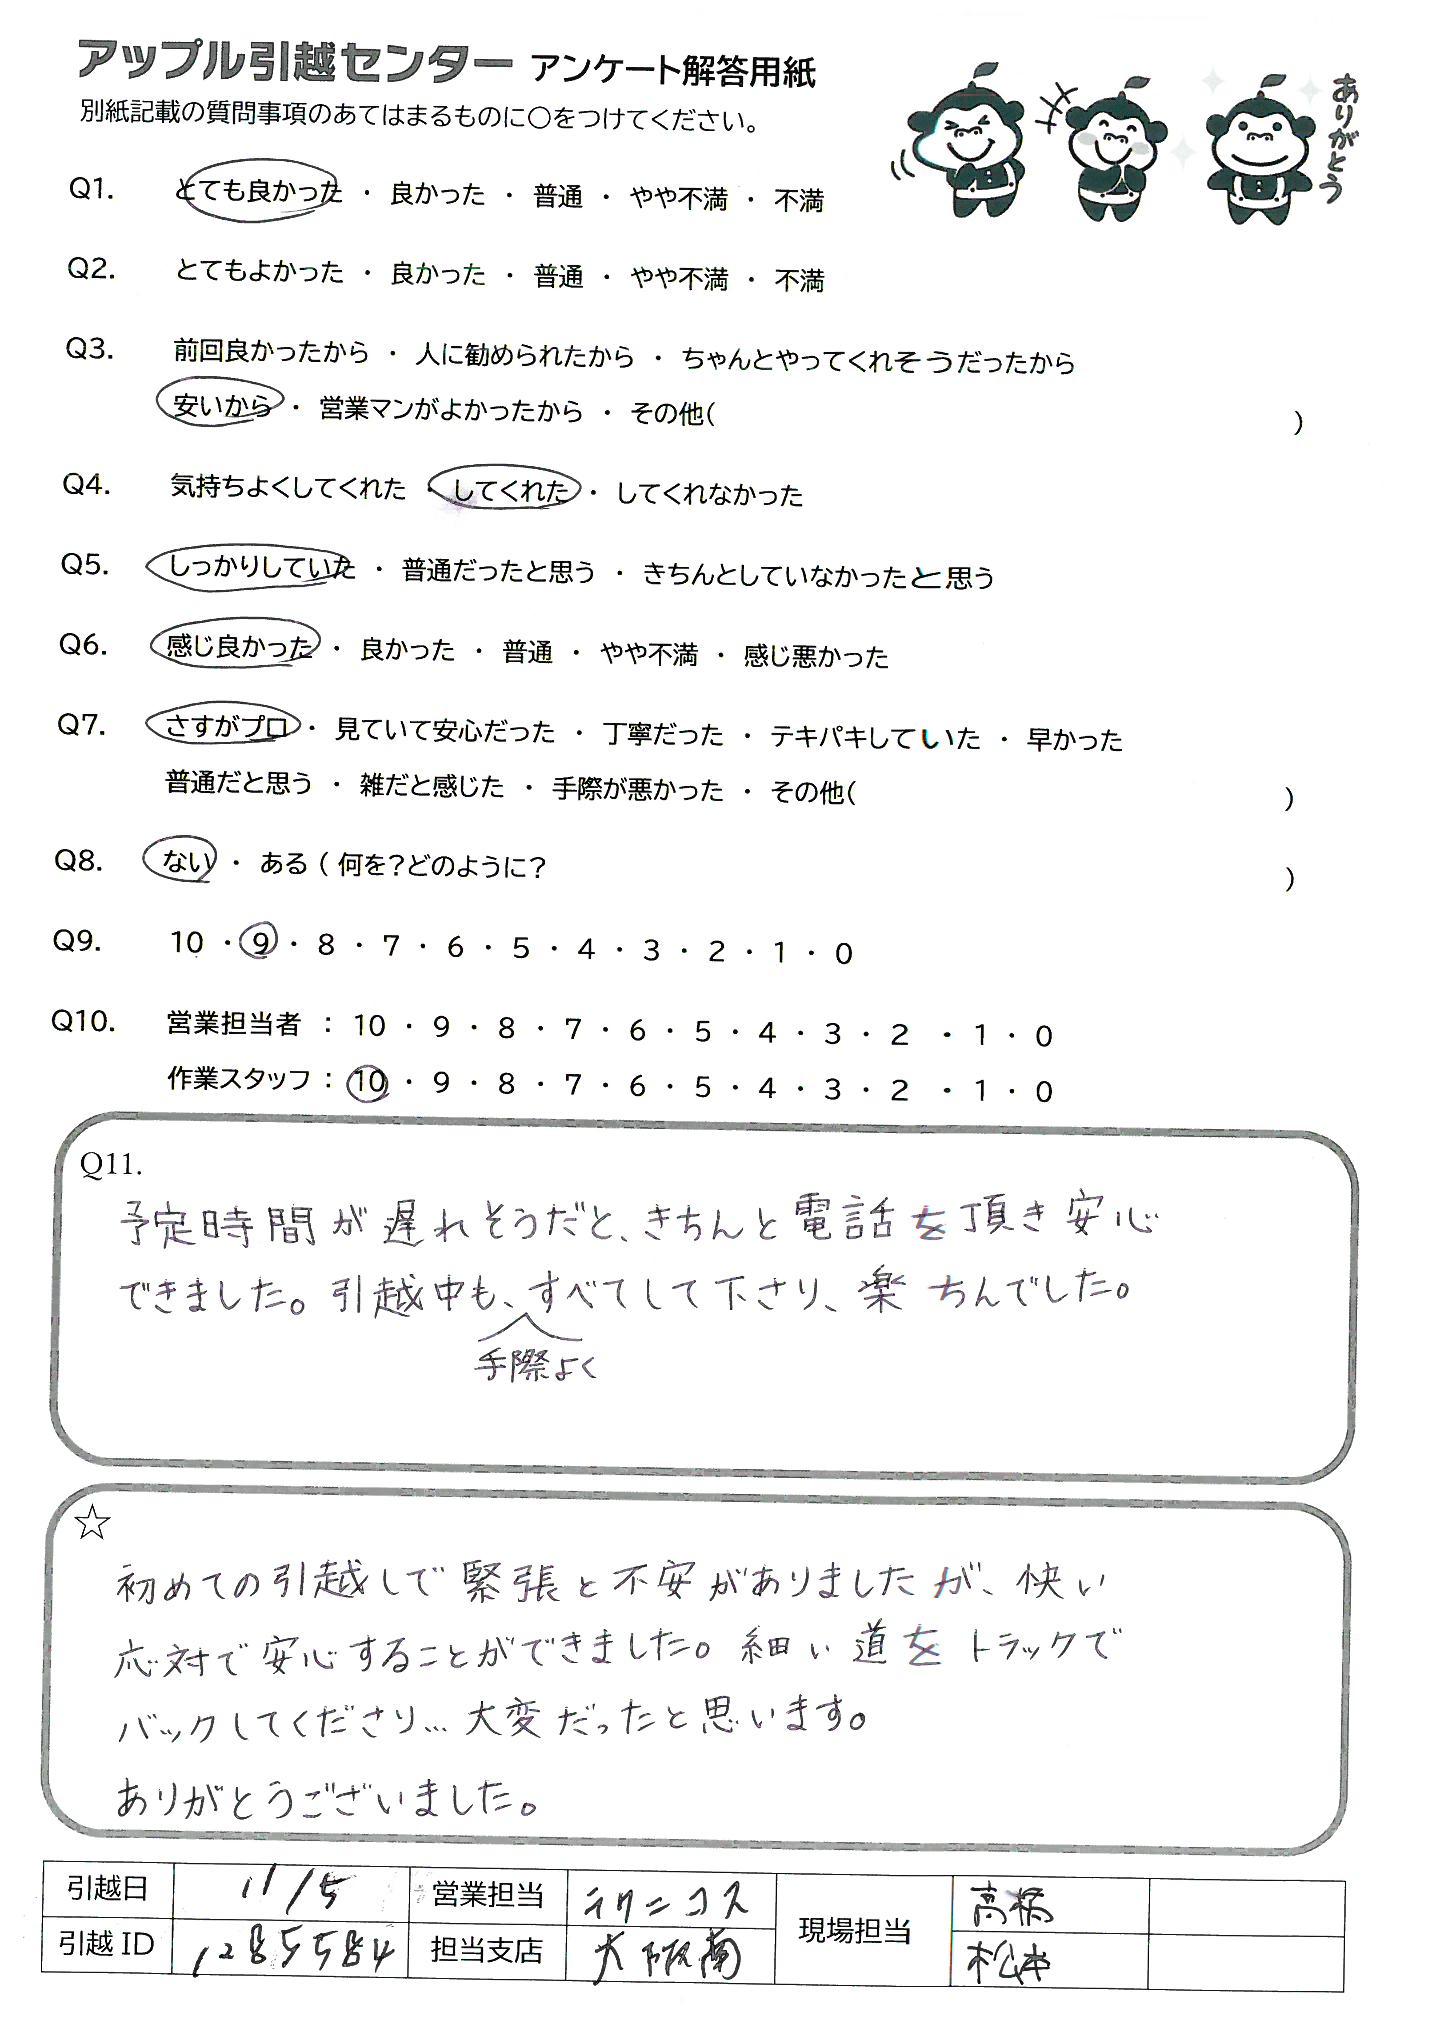 アップル引越センター アンケート解答用紙
別紙記載の質問事項のあてはまるものに○をつけてください。
ありがとう
Q1. とても良かった ・ 良かった ・ 普通 ・ やや不満 ・ 不満
Q2. とてもよかった ・ 良かった ・ 普通 ・ やや不満 ・ 不満
Q3. 前回良かったから ・ 人に勧められたから ・ ちゃんとやってくれそうだったから
安いから ・ 営業マンがよかったから ・ その他( )
Q4. 気持ちよくしてくれた ・ してくれた ・ してくれなかった
Q5. しっかりしていた ・ 普通だったと思う ・ きちんとしていなかったと思う
Q6. 感じ良かった ・ 良かった ・ 普通 ・ やや不満 ・ 感じ悪かった
Q7. さすがプロ ・ 見ていて安心だった ・ 丁寧だった ・ テキパキしていた ・ 早かった
普通だと思う ・ 雑だと感じた ・ 手際が悪かった ・ その他( )
Q8. ない ・ ある ( 何を？どのように？ )
Q9. 10 ・ 9 ・ 8 ・ 7 ・ 6 ・ 5 ・ 4 ・ 3 ・ 2 ・ 1 ・ 0
Q10. 営業担当者 : 10 ・ 9 ・ 8 ・ 7 ・ 6 ・ 5 ・ 4 ・ 3 ・ 2 ・ 1 ・ 0
作業スタッフ : 10 ・ 9 ・ 8 ・ 7 ・ 6 ・ 5 ・ 4 ・ 3 ・ 2 ・ 1 ・ 0
Q11.
予定時間が遅れそうだと、きちんと電話を頂き安心
できました。引越中も、すべてして下さり、楽ちんでした。
手際よく
☆
初めての引越しで緊張と不安がありましたが、快い
応対で安心することができました。細い道をトラックで
バックしてくださり…大変だったと思います。
ありがとうございました。
引越日 11/5 営業担当 現場担当 高橋
引越ID 1285584 担当支店 大阪南 松本